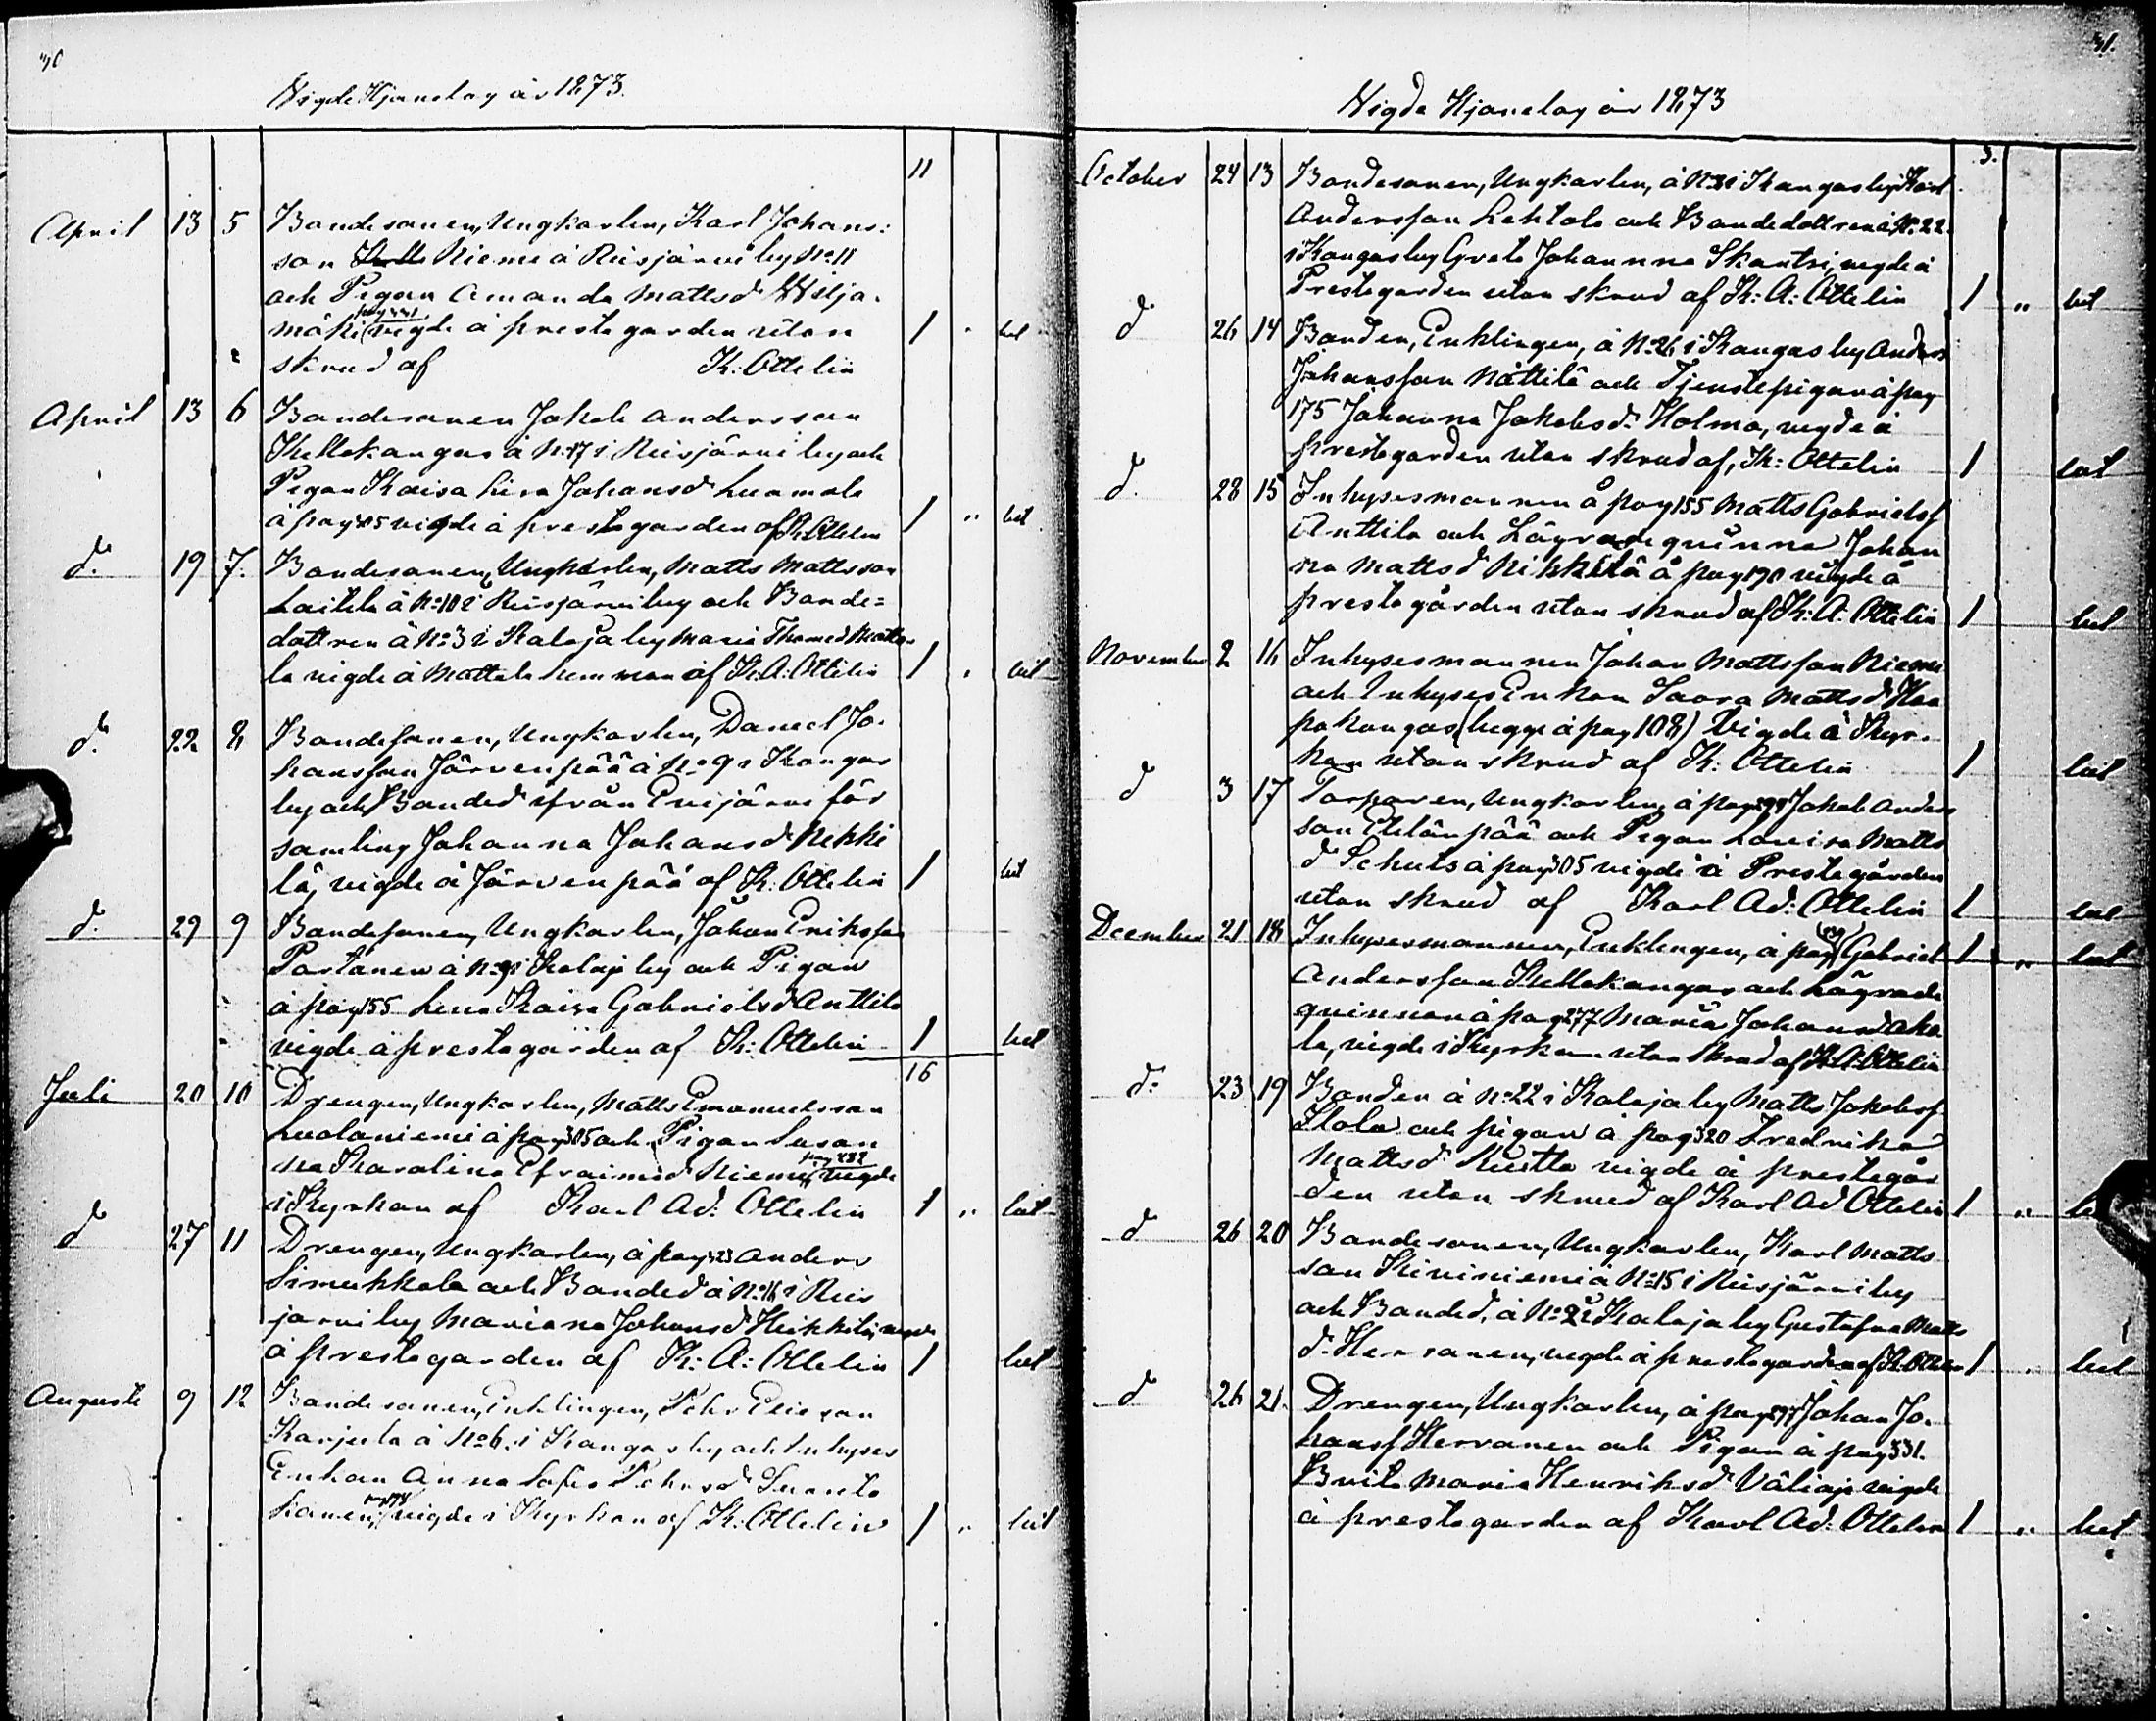 30
Vigde Hjonelag år 1873.
11
April 13 5 Bondesonen, Ungkarlen, Karl Johans:
son Niemi å Reisjärvi by No 11
och Pigan Amanda Mattsd Wilja-
mäki vigde å prestegarden utan 1 " lut
skrud af K: Ottelin
April 13 6 Bondesonen Jakob Andersson
Kellokangas å No 17 i Reisjärvi by och
Pigan Kaisa Lisa Johansd Luomala
å pag vigde å prestegarden af K. Ottelin 1 " lut
d. 19 7. Bondesonen, Ungkarlen, Matts Mattsson
Laitila å No 10 i Reisjärvi by och Bonde=
dottren å No 3 i Kalaja by Maria Thomasd Matti-
la vigde å Mattila hemman af K. A. Ottelin 1 " lut
d. 22 8 Bondesonen, Ungkarlen, Daniel Jo-
hansson Järvenpää å No 9 i Kangas
by och Bonded ifrån Evijärvi för
samling Johanna Johansd Nikki
lä, vigde å Järvenpää af K. Ottelin 1 lut
d. 29 9 Bondesonen, Ungkarlen, Johan Eriksson
Partanen å No 9 i Kalaja by och Pigan
å pag 155 Lena Kaisa Gabrielsd Anttila
vigde å prestegården af K: Ottelin 1 lut
16
Juli 20 10 Drengen, Ungkarlen, Matts Emanuelsson
Luolaniemi å pag 305 och Pigan Susan
na Karolina Efraimsd Niemi, vigde
i Kyrkan af Karl Ad: Ottelin 1 " lut
d 27 11 Drengen, Ungkarlen, å pag 323 Anders
Simukkala och Bonded å No 16 i Reis
jarvi by Mariana Johansd Heikkilä, vigde
å prestegarden af K: A: Ottelin 1 lut
Augusti 9 12 Bondesonen, Enklingen, Pehr Eliesson
Karjula å No 6. i Kangas by och Inhyses
Enkan Anna Sofia Pehrsd
vigde i Kyrkan af K: Ottelin 1 " lut
31.
Vigde Hjonelag år 1873
5.
October 24 13 Bondesonen, Ungkarlen, å No 3 i Kangas by Karl
Andersson Lehtola och Bondedottren å No 22.
i Kangas by Greta Johanna Skantsi, vigde å
Prestegarden utan skrud af K: A: Ottelin 1 " lut
d 26 14 Bonden, Enklingen, å No 26 i Kangas by Anders
Johansson Nättilä och Tjenstepigan å pag
175 Johanna Jakobsd: Holma, vigde å
prestegarden utan skrud af, K: Ottelin 1 lut
d. 28 15 Inhysesmannen å pag 155 Matts Gabrielsf
Anttila och Lägrade quinna Johan
na Mattsd Nikkilä å pag 170 vigde å
prestegården utan skrud af K: A. Ottelin 1 lut
November 2 16 Inhysesmannen Johan Mattsson Niemi
och Inhyses Enkan Saara Mattsd Haa
pakangas (begge å pag 108) Vigde å Kyr-
kan utan skrud af K: Ottelin 1 lut
d 3 17 Torparen, Ungkarlen, å pag Jakob Anders
son Etelänpää och Pigan Lovisa Matts
d Schuls å pag 305 vigde å Prestegården
utan skrud af Karl Ad: Ottelin 1 lut
December 21 18 Inhysesmannen, Enklingen, å pag Gabriel 1 " lut
Andersson Kellokangas och Lägrade
quinnan å pag 277 Maria Johansd Aho
la, vigde i Kyrkan utan skrud af K. A. Ottelin
d: 23 19 Bonden å No 22 i Kalaja by Matts Jakobsf
Stola och pigan å pag 320 Fredrika
Mattsd: vigde å prestegår
den utan skrud af Karl Ad Ottelin 1 "
d 26 20 Bondesonen, Ungkarlen, Karl Matts
son Kiviniemi å No 15 i Reisjärvi by
och Bonded, å No 2 i Kalaja by Gustafva Matts
d. Hersanen, vigde å prestegarden af K. Ottelin 1 " lut
d 26 21. Drengen, Ungkarlen, å pag 297 Johan Jo-
hansf Hervanen och Pigan å pag 331.
Brita Maria Henriksd Väliaja vigde
å prestegarden af Karl Ad. Ottelin 1 " lut